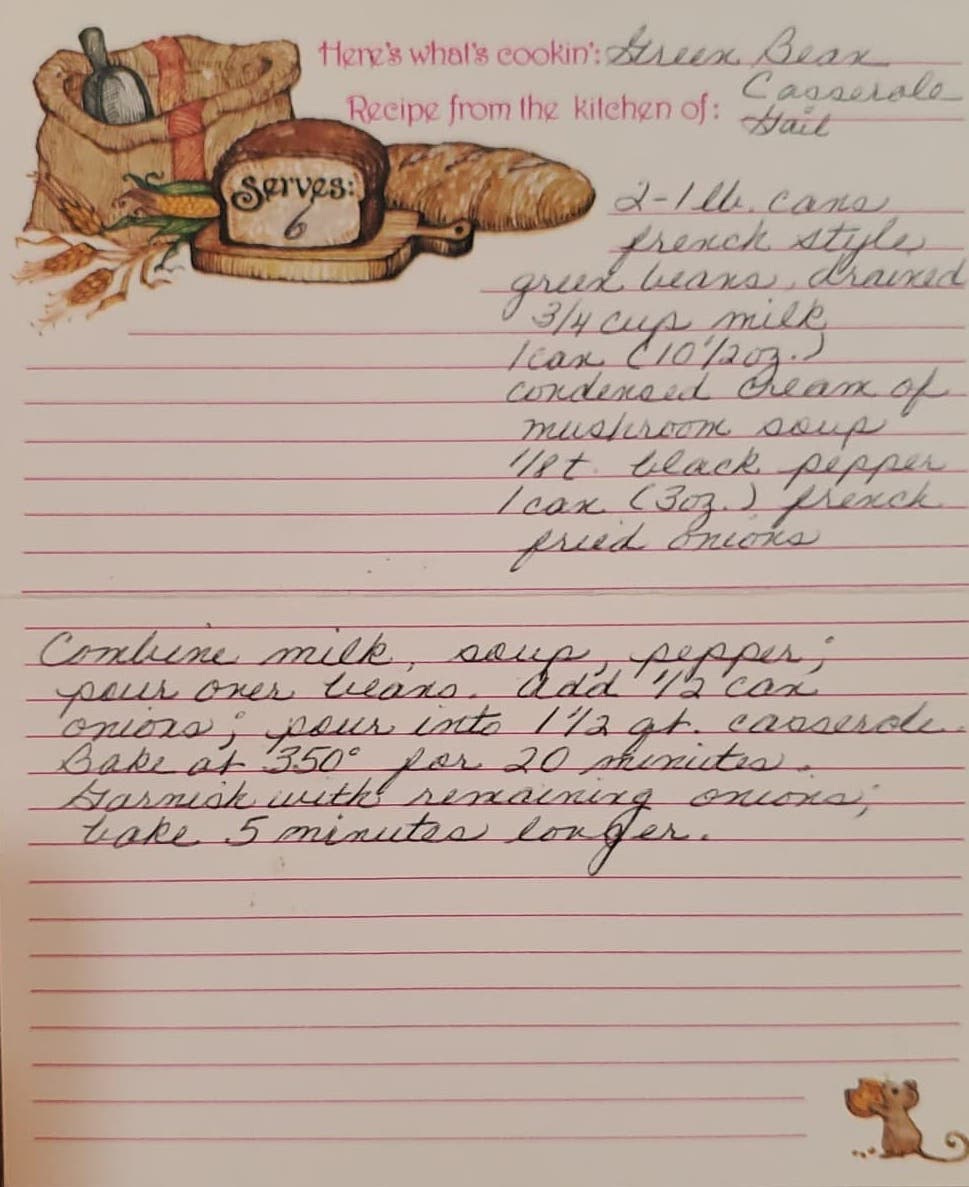 Here's what's cookin': Green Bean
Casserole
Recipe from the kitchen of: Gail
Serves:
6
2-1 lb. cans
french style
green beans, drained
3/4 cup milk
1 can (10 1/2 oz.)
condensed cream of
mushroom soup
1/8 t. black pepper
1 can (3 oz.) french
fried onions
Combine milk, soup, pepper;
pour over beans. Add 1/2 can
onions; pour into 1 1/2 qt. casserole.
Bake at 350° for 20 minutes.
Garnish with remaining onions;
bake 5 minutes longer.